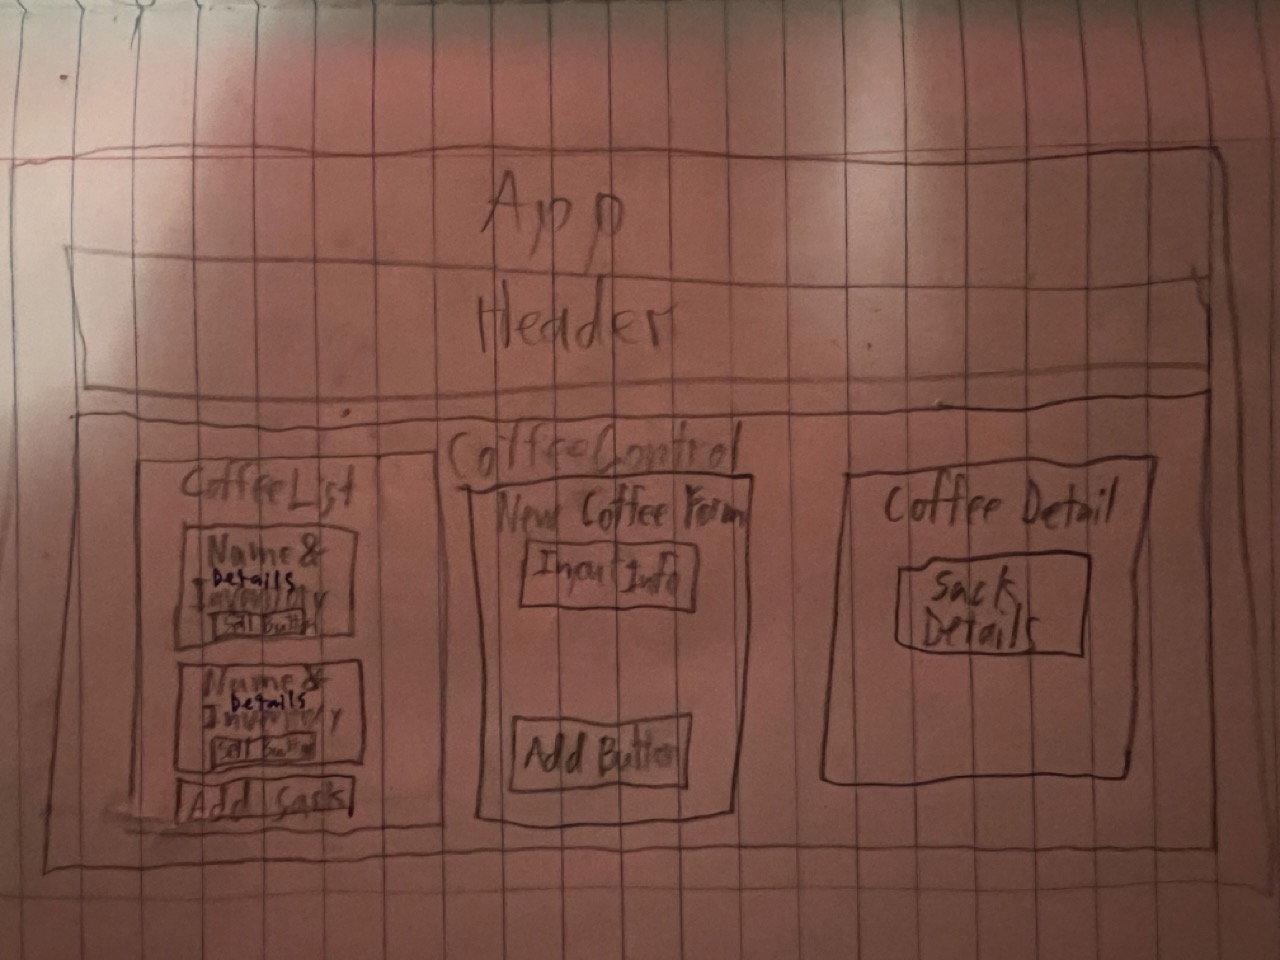 App
Header
CoffeeControl
CoffeeList
Name &
Details
Inventory
Sell Button
Name &
Details
Inventory
Sell Button
Add Sack
New Coffee Form
Input Info
Add Button
Coffee Detail
Sack
Details